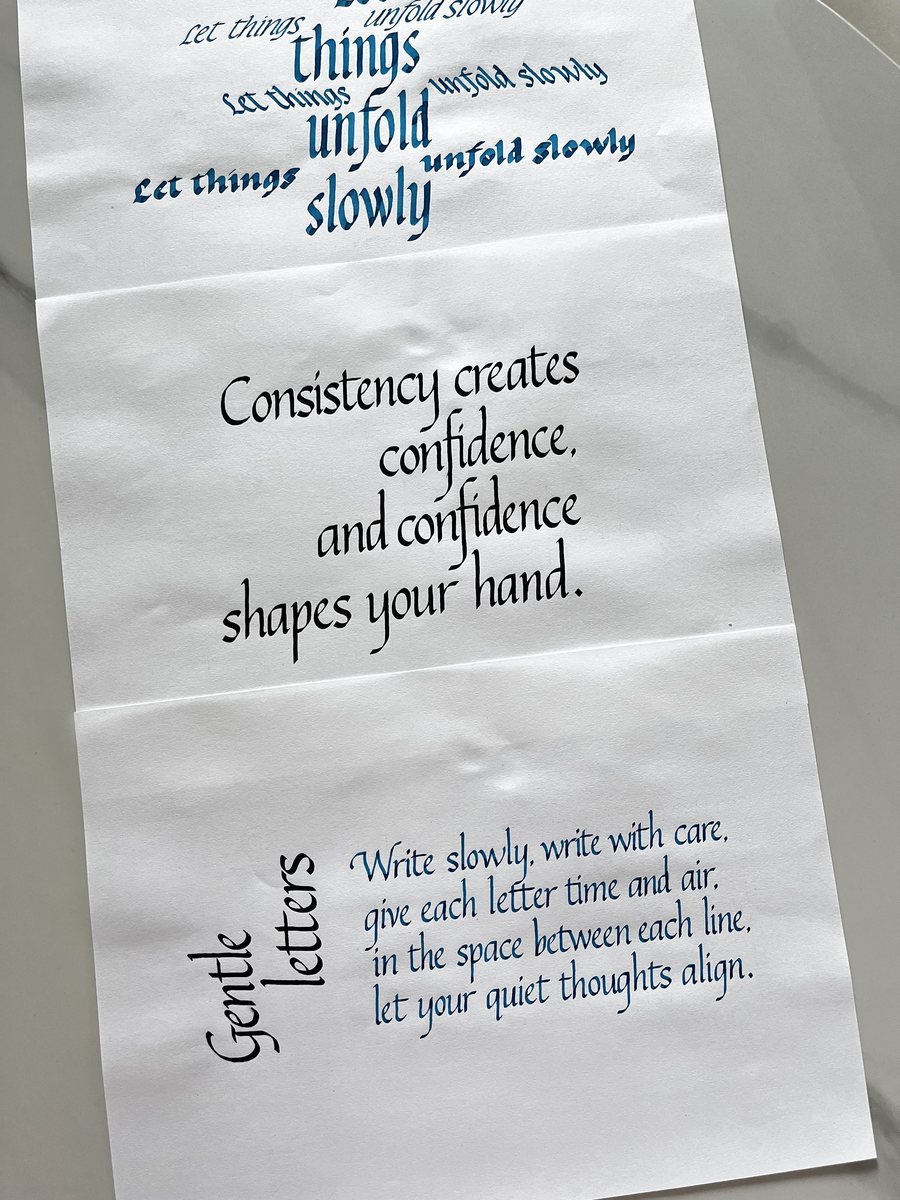 Let things unfold slowly
things
Let things unfold slowly
unfold
Let things unfold slowly
slowly
Consistency creates
confidence,
and confidence
shapes your hand.
Gentle
letters
Write slowly, write with care,
give each letter time and air,
in the space between each line,
let your quiet thoughts align.